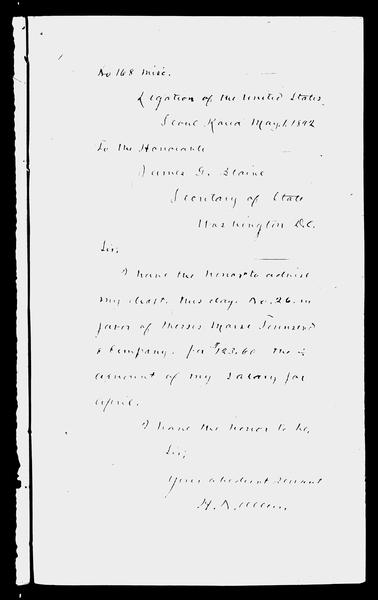 No 168 Misc.
Legation of the United States,
Seoul Korea May, 1. 1892
To the Honorable
James G. Blaine
Secretary of State
Washington D.C.
Sir;
I have the honor to advise
my draft this day. No. 26. in
favor of Messrs Morse Townsend
& Company. for $123.60 the
amount of my salary for
April.
I have the honor to be,
Sir;
Your obedient servant
H. N. Allen.